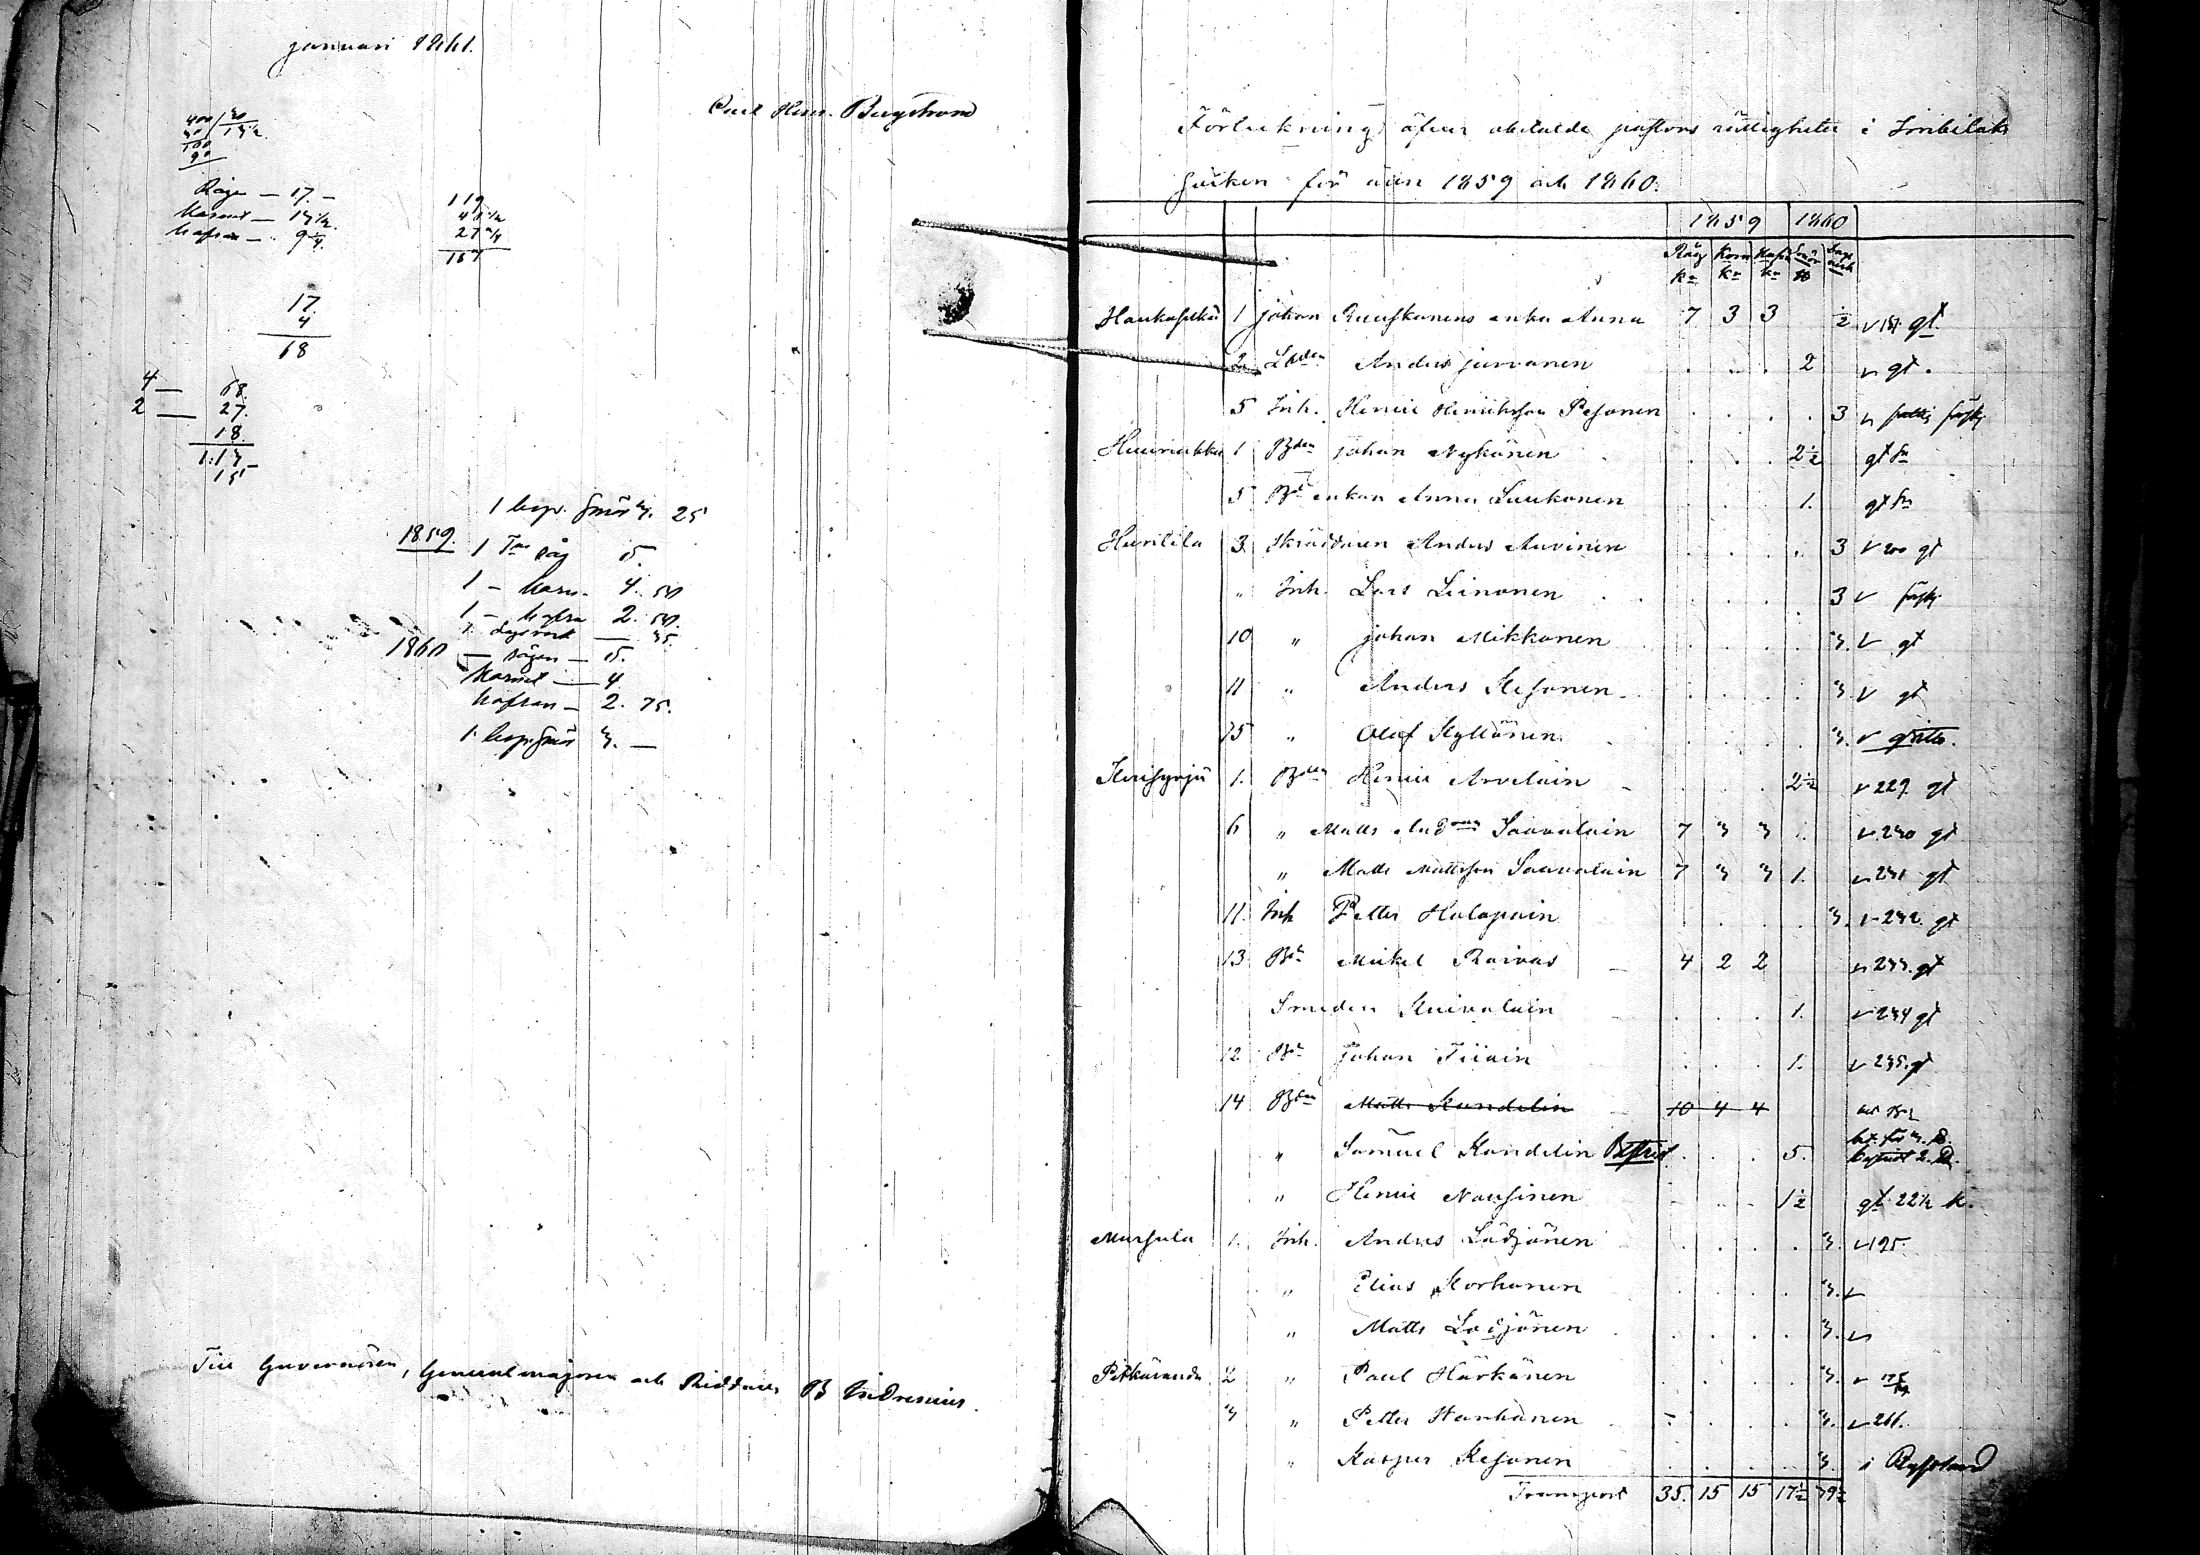 januari 1861.
Carl Henr. Bergstrom
400/30
30/13 1/2
100
90
Rågen — 17. —
Kornet — 13 1/2.
hafra — 9 1/4.
119
27 3/4
187
17.
4
68
4 — 68.
2 — 27.
18.
1:13
15
1 lisp. smör 3. 25
1859. 1 Tna råg 15.
1 — korn. 4. 50
1 — hafra 2. 50.
1 dagsverk — 35.
1860 — rågen — 15.
Kornet — 4
hafran — 2. 75.
1. lisp. smör 3. —
Till Guvernören, Generalmajoren och Riddaren B Indrenius.
Förteckning öfver obetalde pastors rättigheter i Imbilaks
socken för åren 1859 och 1860.
1859 1860
Råg Korn Hafra Smör Dags verk
kr kr kr ℔
Haukaselkä 1 Johan Ruuskanens enka Anna 7 3 3 1/2 v 131. gt.
2. Anders Jurvanen . . . 2 v gt.
5 Inh. Henric Henriksson Pesonen . . . . 3 v
Huunukka 1 Bden Johan Nykänen . . . 2 1/2 gt
5 Bd enkan Anna Luukonen . . 1. gt
Hunttila 3. Skräddaren Anders Auvinen . . . . 3 v 200 gt
" Inh. Lars Leinonen . . . . 3 v
10 " Johan Mikkonen . . . . 3. v gt
11 " Anders Kesonen . . . . 3 v gt
15 " Olof Kyllönen . . . . 3. v
Kerisyrjä 1. Bden Henric Arvelain . . . 2 1/2 v 229 gt
6 " Matts Andsson Saavalain 7 3 3 1. v 230 gt
" Matts Mattsson Saavalain 7 3 3 1. v 231 gt
11. Inh Petter Halapain . . . . 3. v 232. gt
13 Bd Mickel Raivas 4 2 2 v 233. gt
Smeden Kuivalain . . . 1. v 234 gt
12 Bd Johan Tiiain . . . 1. v 235. gt
14 Bden Matts Kandelin 10 4 4
" Samuel Kandelin . . . 5.
" Henric Nousinen . . . 1 1/2 gt 22 1/2 k.
Mursula 1. Inh. Anders Lädjänen . . . . 3. v 195.
" Elias Korhonen . . . . 3. v
" Matts Lädjönen . . . . 3. v
Pitkäranda 2 " Paul Härkönen . . . . 3. v
3 " Petter Hankanen . . . . 3. v 211.
" Kasper Kesonen . . . . 3. i Ryssland
Transport 35. 15 15 17 1/2 39 1/2